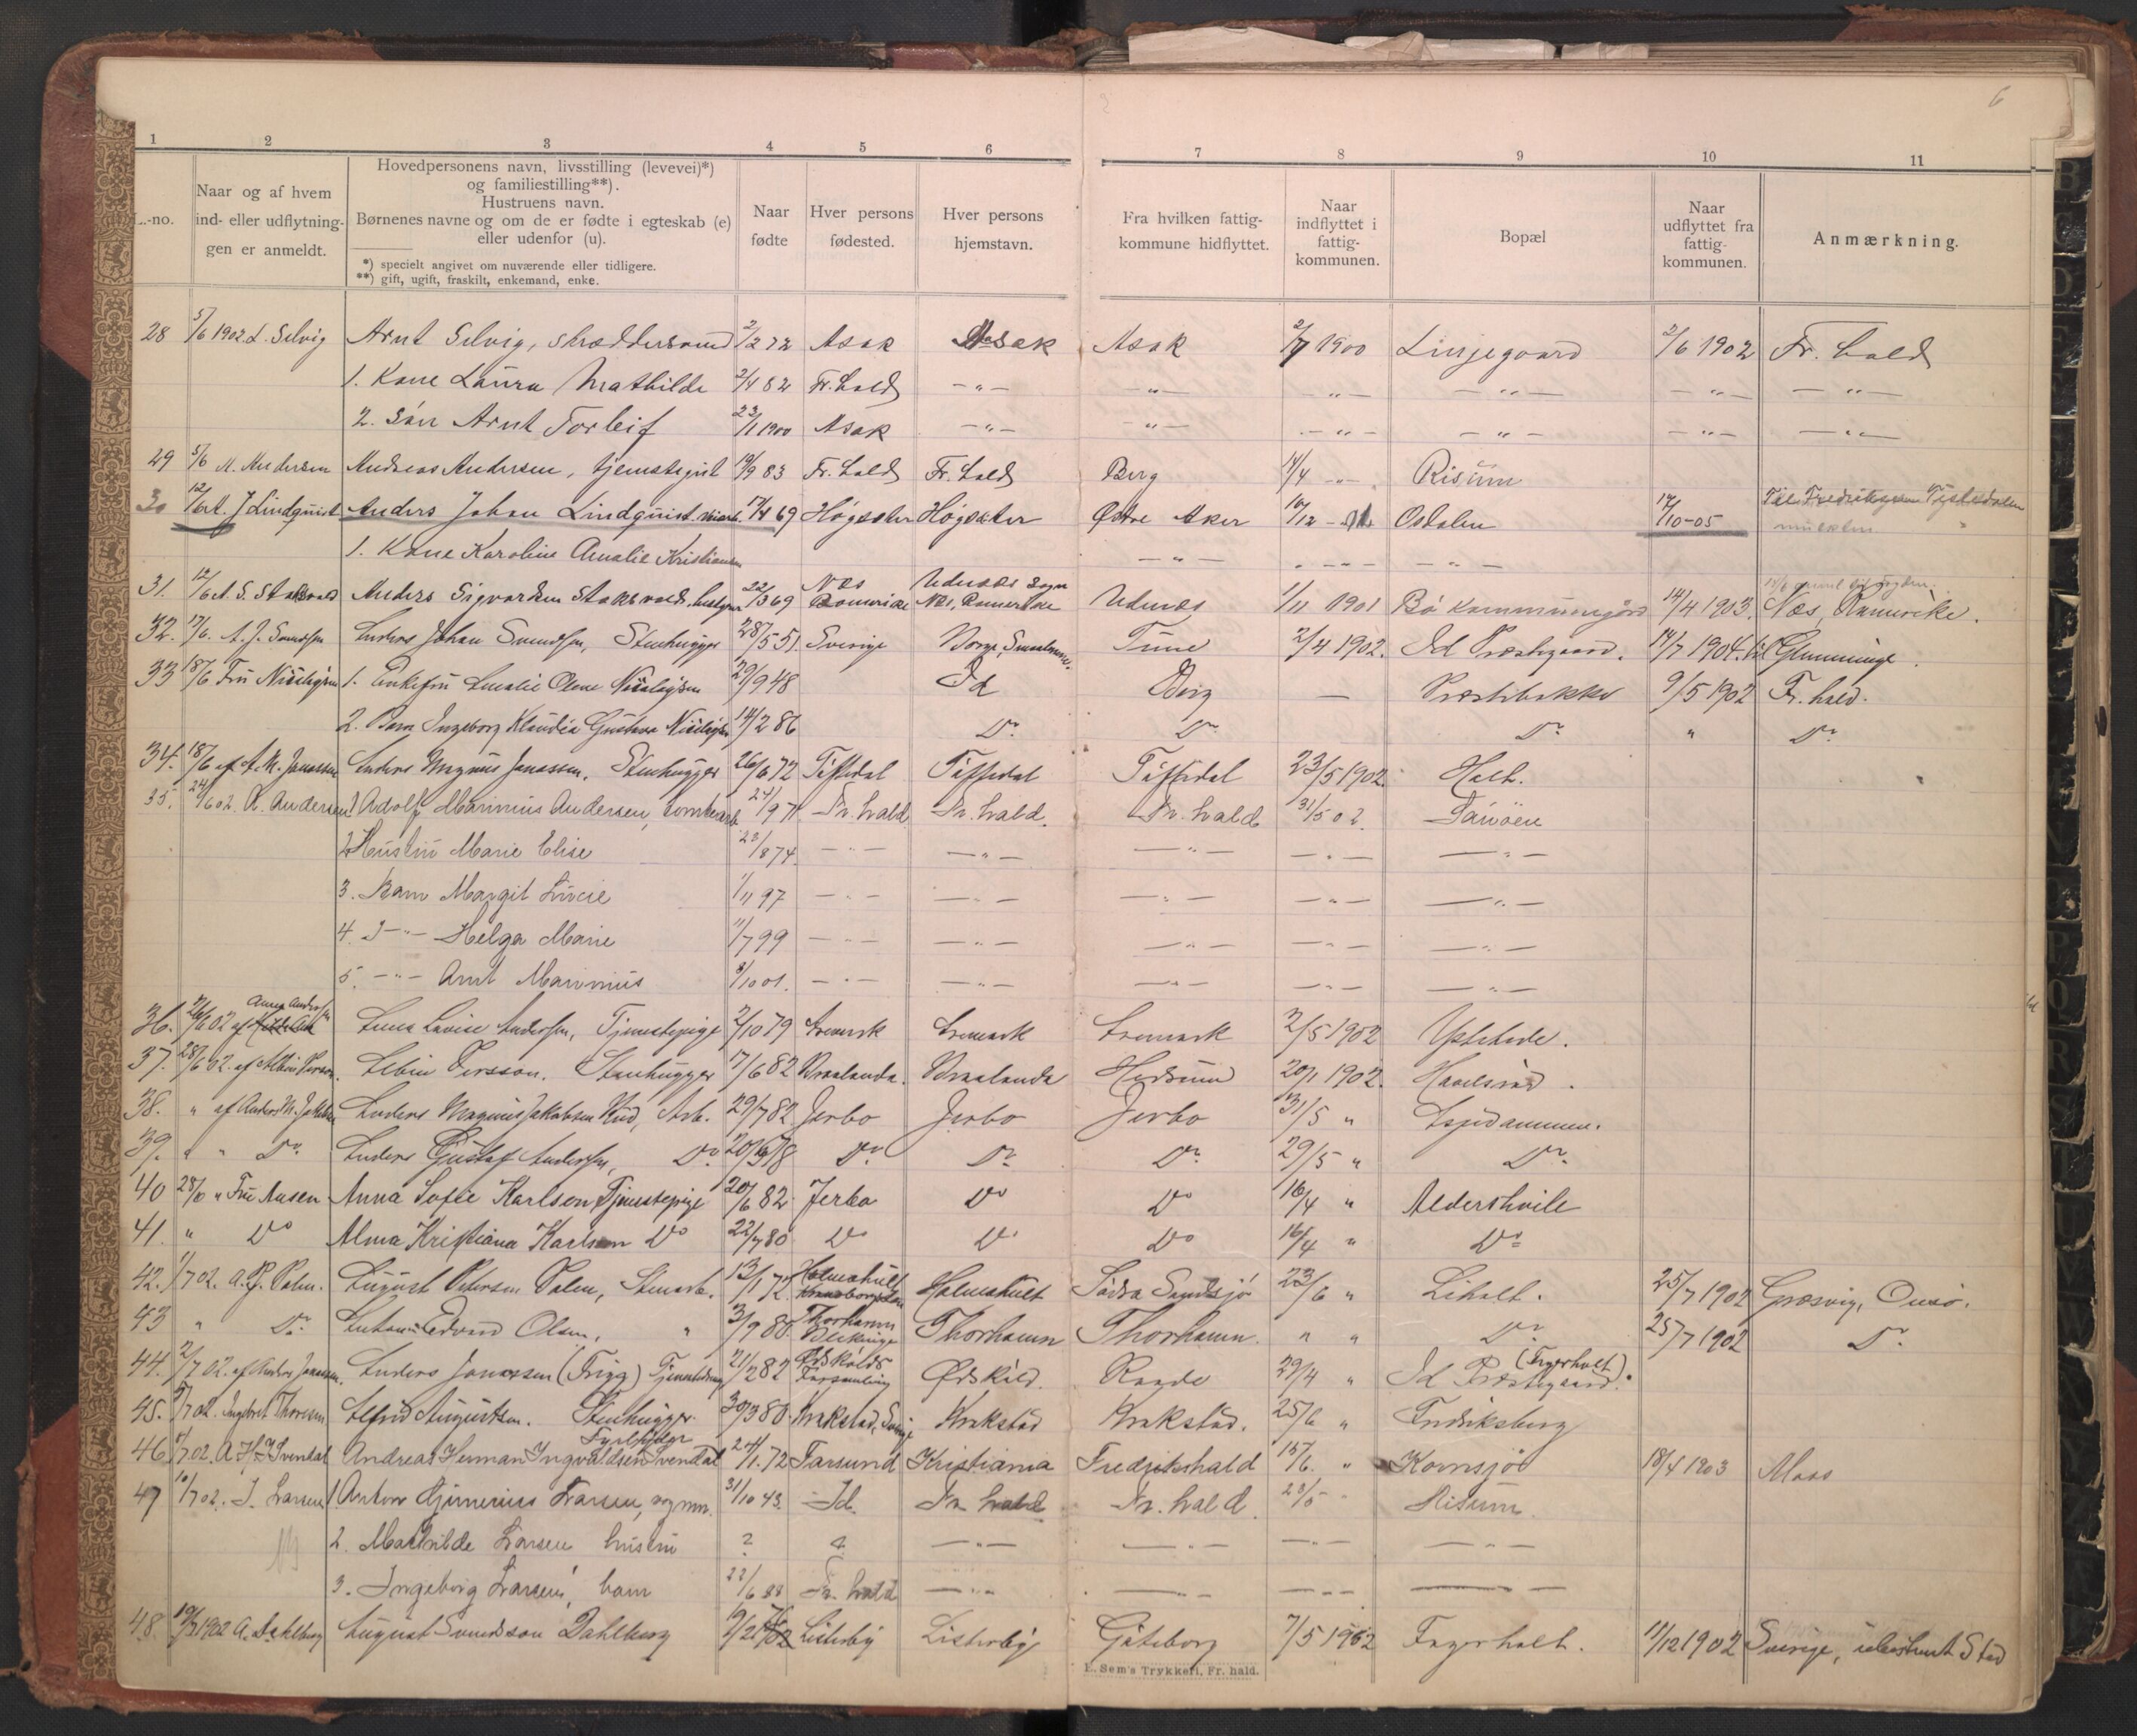 6
1 2 3 4 5 6 7 8 9 10 11
L.-no.
Naar og af hvem
ind- eller udflytnin-
gen er anmeldt.
Hovedpersonens navn, livsstilling (levevei)*)
og familiestilling**).
Hustruens navn.
Børnenes navne og om de er fødte i egteskab (e)
eller udenfor (u).
*) specielt angivet om nuværende eller tidligere.
**) gift, ugift, fraskilt, enkemand, enke.
Naar
fødte
Hver persons
fødested.
Hver persons
hjemstavn.
Fra hvilken fattig-
kommune hidflyttet.
Naar
indflyttet i
fattig-
kommunen.
Bopæl
Naar
udflyttet fra
fattig-
kommunen.
Anmærkning.
28 5/6 1902 L. Selvig Arnt Selvig, skræddersvend 2/2 72 Asak Asak Asak 2/7 1900 Linjegaard 2/6 1902 Fr. hald
1. Kone Laura Mathilde 2/4 82 Fr. hald -"- -"- -"- -"- -"- -"-
2. Søn Arnt Torleif 23/11 1900 Asak -"- -"- -"- -"- -"- -"-
29 5/6 A. Andersen Andreas Andersen, tjenestegut 19/9 83 Fr. hald Fr. hald Berg 14/4 -"- Risum
30 12/6 A. J Lindquist Anders Johan Lindquist 17/4 69 Högsäter Högsäter Østre Aker 10/12 - 01 Osdalen 14/10-05 Tistedalen
1. Kone Karoline Amalie Kristiansen -"- -"- -"-
31. 12/6 A. S. Staksvold Anders Sigvardsen Staksvold, 22/3 69 Næs Romerike Udenæs Sogn Næs, Romerike Udenæs 1/11 1901 Bö kommunegård 14/4 1903. Næs, Romerike.
32. 17/6. A. J. Svendsen Anders Johan Svendsen, Stenhugger 28/5 51. Sverige Borge, Smaalenene. Tune 2/4 1902. Id Præstegaard. 14/7 1904. til Glemminge.
33 18/6 Fru 1. Enkefru Amalie Olene 29/9 48 Id Berg — Præstebakke 9/5 1902 Fr. hald.
2. Barn Ingeborg Klaudia Gustava 14/2 86 Do Do Do " Do
34. 18/6 af A. M. Janassen Anders Magnus Janassen. Stenhugger 26/6 72 Tistedal Tistedal Tistedal 23/5 1902. Holt.
35. 24/6 02. A. Andersen 1 Adolf Marinius Andersen, tomtearb. 24/9 71 Fr. hald Fr. hald. Fr. hald 31/5 02.
2 Hustru Marie Elise 23/8 74 -"- -"- -"- -"- -"-
3. Barn Margit Lucie 1/11 97 -"- -"- -"- -"- -"-
4. D -"- Helga Marie 11/7 99 -"- -"- -"- -"- -"-
5. -"- Arnt Marinius 8/10 01. -"- -"- -"- -"- -"-
36. 26/6 02 af Anna Andersen Anna Lovise Andersen, Tjenestepige 2/10 79 Aremark Aremark Aremark 2/5 1902
37. 28/6 02. af Albin Persson. Albin Persson. Stenhugger 17/6 82 Braalanda. Braalanda Hedrum 20/1 1902.
38. " af Anders M. Jakobsen Anders Magnus Jakobsen Rud, Arb. 29/7 82 Jerbo Jerbo Jerbo 31/5 " Aspedammen.
39. " " Do Anders Gustaf Andersen, Do. 20/6 78 Do Do Do 29/5 " Do
40 28/6 " Fru Ansen Anna Sofie Karlson Tjenestepige 20/6 82 Jerbo Do Do 16/4 " Aldershvile
41. " Do Alma Kristiana Karlson Do 22/7 80 Do Do Do 16/4 " Do
42. 1/7 02. A. P. Palm. August Petersen Palm, Stenarb. 13/1 72. Holmahult Holmahult Södra Sandsjö 23/6 " Liholt. 25/7 1902 Græsvig, Onsø.
43 " Do Antoni Edvard Olsen, " 3/9 80. Thorhamn Blekinge Thorhamn Thorhamn. " " Do 25/7 1902 Do
44. 2/7 02. af Anders Janassen. Anders Janassen (Frigg) Tjenestedreng 21/2 82 Ødskölds Församling Ødsköld. Raade 29/4 " Id Præstegaard. (Fagerholt)
45. 5/7 02. Ingebret Thoresen Alfred Augustsen. Stenhugger. 30/3 80. Krakstad, Sverige Krakstad Krakstad. 25/6 " Fredriksberg
46 8/7 02. A H J Svendal Andreas Herman Ingvaldsen Svendal Fyrbøder 24/1. 72 Farsund Kristiania Fredrikshald 15/6. " Kornsjø 18/4 1903 Moss
47 10/7 02. J. Larsen 1 Anton Gjimerius Larsen, 31/10 43. Id. Fr hald Fr. hald. 23/5 - Risum.
2. Mathilde Larsen hustru ? ? -"- -"- -"- -"-
3. Ingeborg Larsen, barn 22/6 88 Fr. hald -"- -"- -"- -"-
48. 19/7 1902 A. Dahlberg August Svendsson Dahlberg Listerby Listerby Göteborg 7/5 1902 Fagerholt. 11/12 1902 Sverige, ubestemt Sted
E. Sem's Trykkeri, Fr. hald.